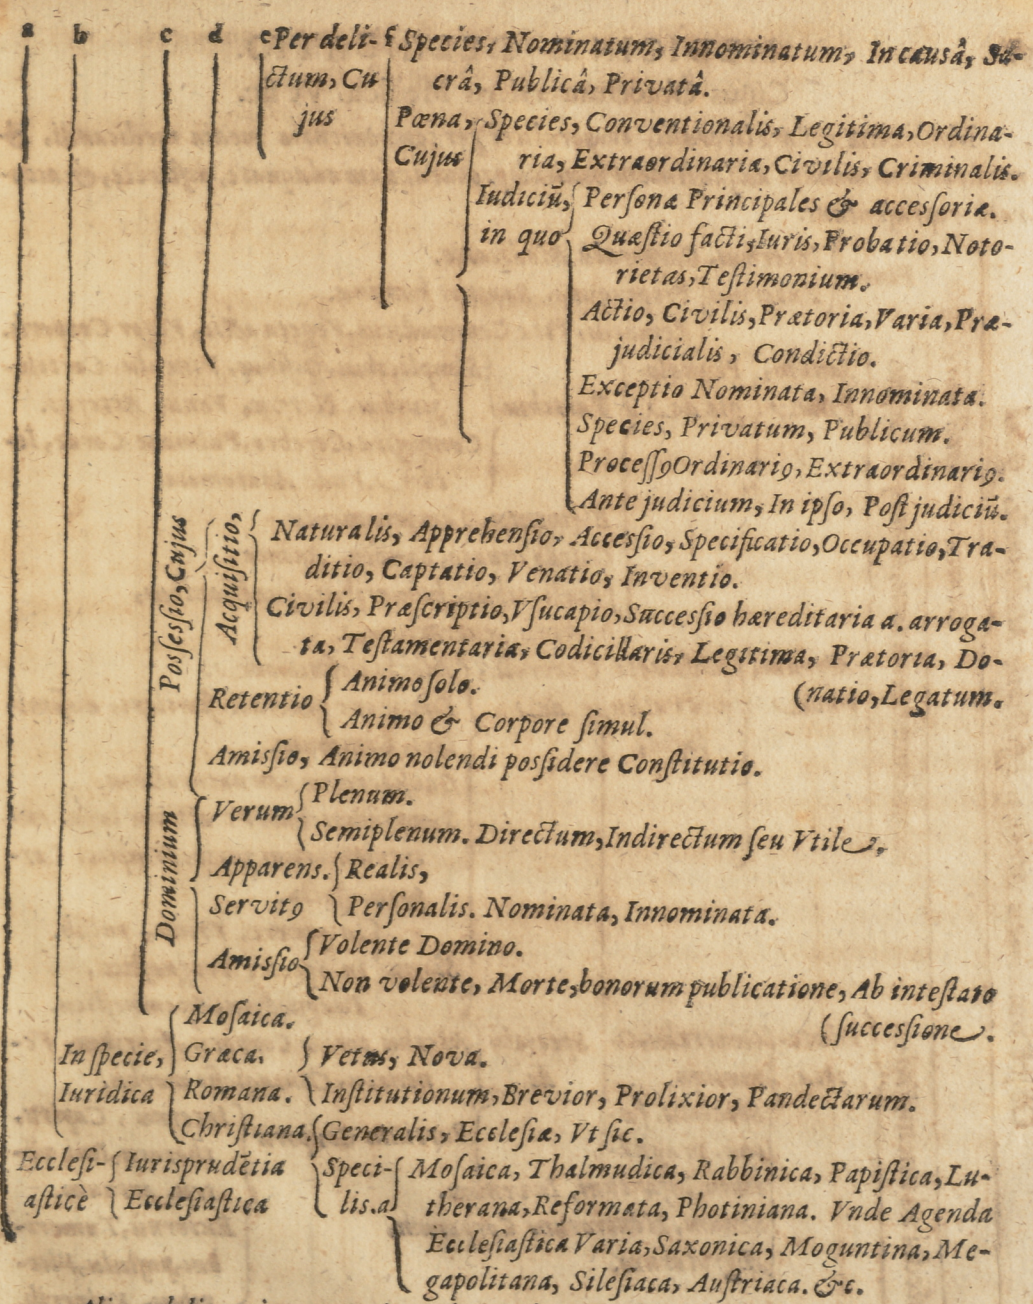 a b c d e Per deli- f Species, Nominatum, Innominatum, In causâ, Sa-
ctum, Cu crâ, Publicâ, Privatâ.
jus Pœna, Species, Conventionalis, Legitima, Ordina-
Cujus ria, Extraordinaria, Civilis, Criminalis.
Iudiciū, Personæ Principales & accessoriæ.
in quo Quæstio facti, Iuris, Probatio, Noto-
rietas, Testimonium.
Actio, Civilis, Prætoria, Varia, Præ-
judicialis, Condictio.
Exceptio Nominata, Innominata.
Species, Privatum, Publicum.
Processꝰ Ordinariꝰ, Extraordinariꝰ.
Ante judicium, In ipso, Post judiciū.
Possessio, Cujus
Acquisitio,
Naturalis, Apprehensio, Accessio, Specificatio, Occupatio, Tra-
ditio, Captatio, Venatio, Inventio.
Civilis, Præscriptio, Vsucapio, Successio hæreditaria a. arroga-
ta, Testamentaria, Codicillaris, Legitima, Prætoria, Do-
Retentio Animo solo. (natio, Legatum.
Animo & Corpore simul.
Amissio, Animo nolendi possidere Constitutio.
Dominium
Verum Plenum.
Semiplenum. Directum, Indirectum seu Vtile.
Apparens. Realis,
Servitꝰ Personalis. Nominata, Innominata.
Amissio Volente Domino.
Non volente, Morte, bonorum publicatione, Ab intestato
(successione.
Mosaica.
In specie, Græca. Vetus, Nova.
Iuridica Romana. Institutionum, Brevior, Prolixior, Pandectarum.
Christiana. Generalis, Ecclesiæ, Vt sic.
Ecclesi- Iurisprudētia Speci- Mosaica, Thalmudica, Rabbinica, Papistica, Lu-
asticè Ecclesiastica lis.a therana, Reformata, Photiniana. Vnde Agenda
Ecclesiastica Varia, Saxonica, Moguntina, Me-
gapolitana, Silesiaca, Austriaca. &c.